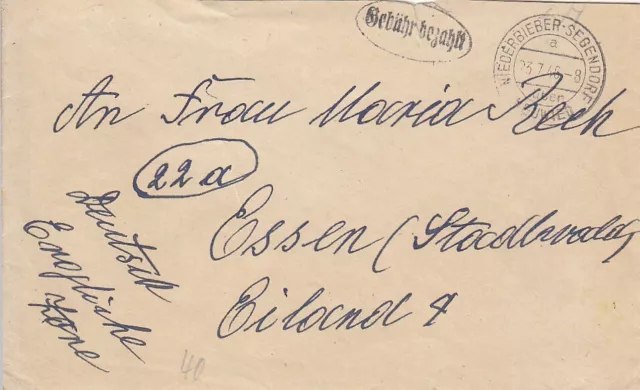 Gebühr bezahlt
NIEDERBIEBER-SEGENDORF
a
23.7.46-8
über
NEUWIED
An Frau Maria Rech
22a
Essen (Stadtwald)
Eiland 4
Deutsch
Englische
Zone
40